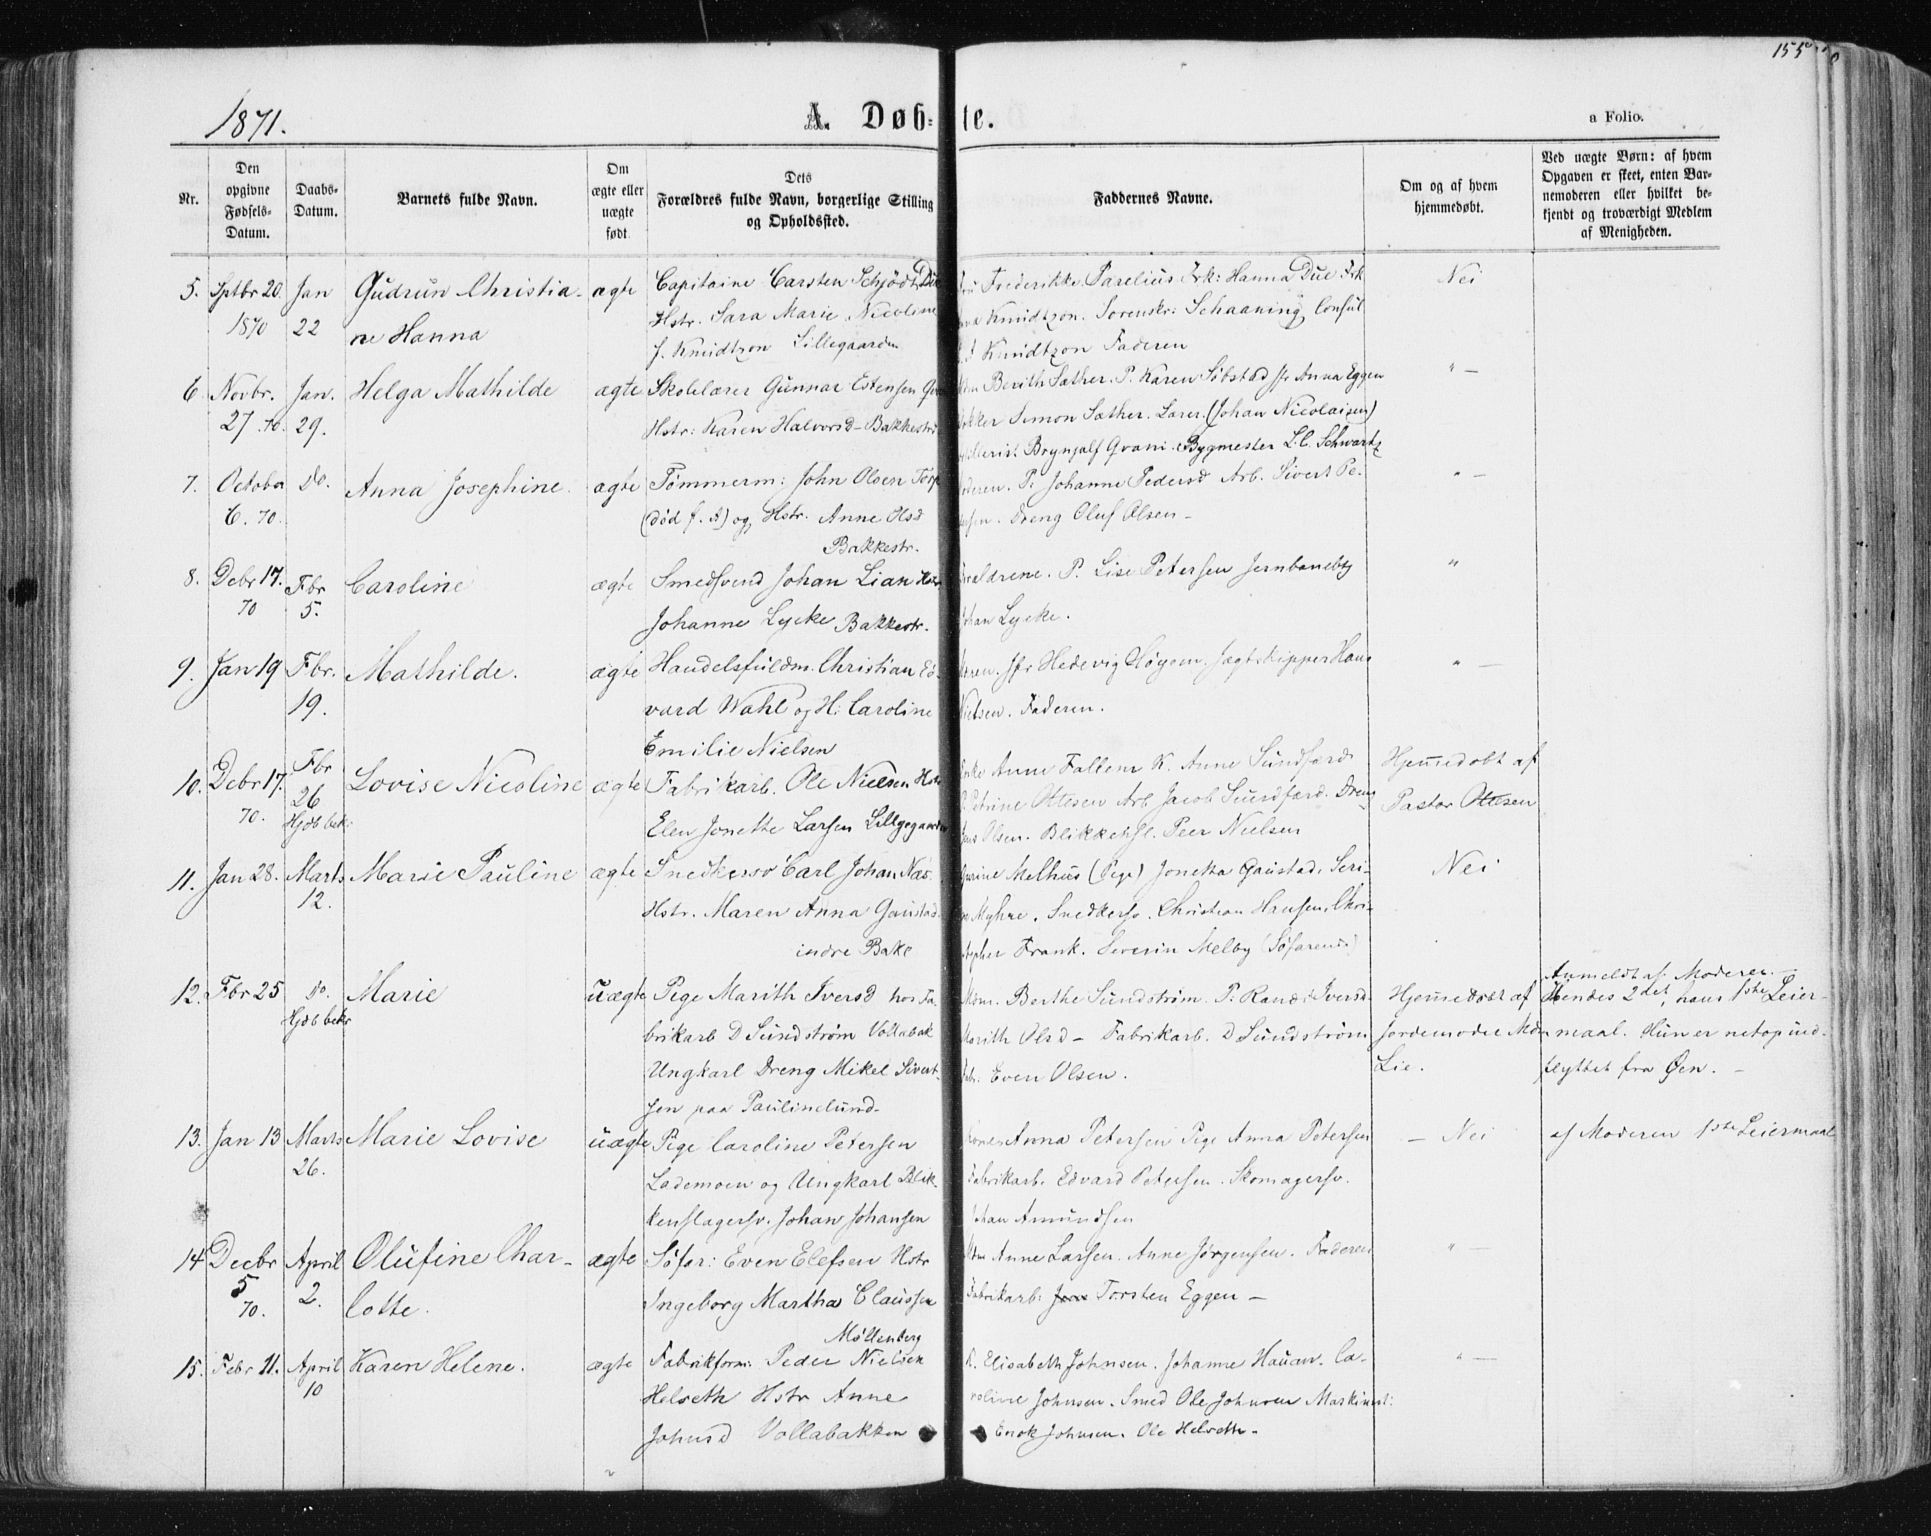 155
1871.
A. Døb-te.
a Folio.
Nr.
Den opgivne Fødsels-Datum.
Daabs-Datum.
Barnets fulde Navn.
Om ægte eller uægte født.
Dets Forældres fulde Navn, borgerlige Stilling og Opholdssted.
Faddernes Navne.
Om og af hvem hjemmedøbt.
Ved uægte Børn: af hvem Opgaven er skeet, enten Barnemoderen eller hvilket bekjendt og troværdigt Medlem af Menigheden.
5. Sptbr 20. Jan Gudrun Christia- ægte Capitaine Carsten Schjödt Due Fru Frederikke Parelius Frk: Hanna Due Frk Nei
1870 22 ne Hanna Hstr. Sara Marie Nicoline Knudtzon. Sorenskr: Schaaning Consul
f. Knudtzon Lillegaarden Knudtzon Faderen
6 Novbr. Jan. Helga Mathilde ægte Skolelærer Gunnar Estensen Mdm Berith Sæther. P. Karen Söbstad Jfr Anna Eggen " —
27. 70. 29. Hstr: Karen Halvorsd - Bakkestr Simon Sæther. Lærer (Johan Nicolaisen)
Brynjalf Qvam. Bygmester L. C. Schwartz
7. October Do. Anna Josephine. ægte Tømmerm: John Olsen Torp Moderen. P. Johanne Pedersd Arb. Sivert Pe- " —
6. 70. (död f. A) og Hstr. Anne Olsd dersen. Dreng Oluf Olsen -
Bakkestr.
8. Debr 17. Fbr Caroline ægte Smedsvend Johan Lian Hstr. Forældrene. P. Lise Petersen Jernbaneby "
70 5. Johanne Lycke Bakkestr. Johan Lycke.
9. Jan 19 Fbr. Mathilde. ægte Handelsfuldm. Christian Ed- Jfr Hedevig Høyem. Jagtskipper Hans " —
19. vard Wahl og H. Caroline Nielsen. Faderen.
Emilie Nielsen
10. Debr 17. Fbr Lovise Nicoline ægte Fabrikarb. Ole Nielsen Hstr Enke Anne Fallem K. Anne Sundfærd Hjemmedøbt af
70. 26 Elen Jonette Larsen Lillegaarden P. Petrine Ottesen Arb. Jacob Sundfærd. Dreng Pastor Ottesen
Hjdb bek: Olsen. Blikkensl. Peer Nielsen
11. Jan 28. Marts Marie Pauline ægte Snedkersv Carl Johan Næs. Melhus (Pige) Jonetta Gaustad. Seri- Nei
12. Hstr. Maren Anna Gaustad. Myhre. Snedkersv. Christian Hansen. Chri-
indre Bake stopher Frank. Severin Melby (Søfarende)
12. Fbr 25 Do. Marie uægte Pige Marith Iversd hos Fa- Mdm. Berthe Sundström. P: Randi Iversd. Hjemmedøbt af Anmeldt af Moderen. —
Hjdb bekr brikarb D Sundström Vollabak Marith Olsd - Fabrikarb. D Sundström Jordemoder Mdm Hendes 2det, hans 1ste Leier-
Ungkarl Dreng Mikel Sivert- Even Olsen. Lie. maal. Hun er netop ind-
sen paa Paulinelund. flyttet fra Øen. —
13. Jan 13 Marts Marie Lovise uægte Pige Caroline Petersen Konen Anna Petersen Pige Anna Petersen — Nei af Moderen 1ste Leiermaal
26. Lademoen og Ungkarl Blik- Fabrikarb. Edvard Petersen. Skomagersv.
kenslagersv. Johan Johansen Johan Amundsen
14 Decbr April Olufine Char- ægte Söfar: Even Elefsen Hstr Mdm Anne Larsen. Anne Jørgensen. Faderen " —
5 2. lotte. Ingeborg Martha Claussen Fabrikarb: Torsten Eggen —
70. Møllenberg
15. Febr 11. April Karen Helene. ægte Fabrikform: Peder Nielsen K. Elisabeth Johnsen. Johanne Hauan. Ca- " —
10 Helseth Hstr Anne roline Johnsen. Smed Ole Johnsen Maskinist:
Johnsd Vollabakken Enok Johnsen. Ole Helseth.